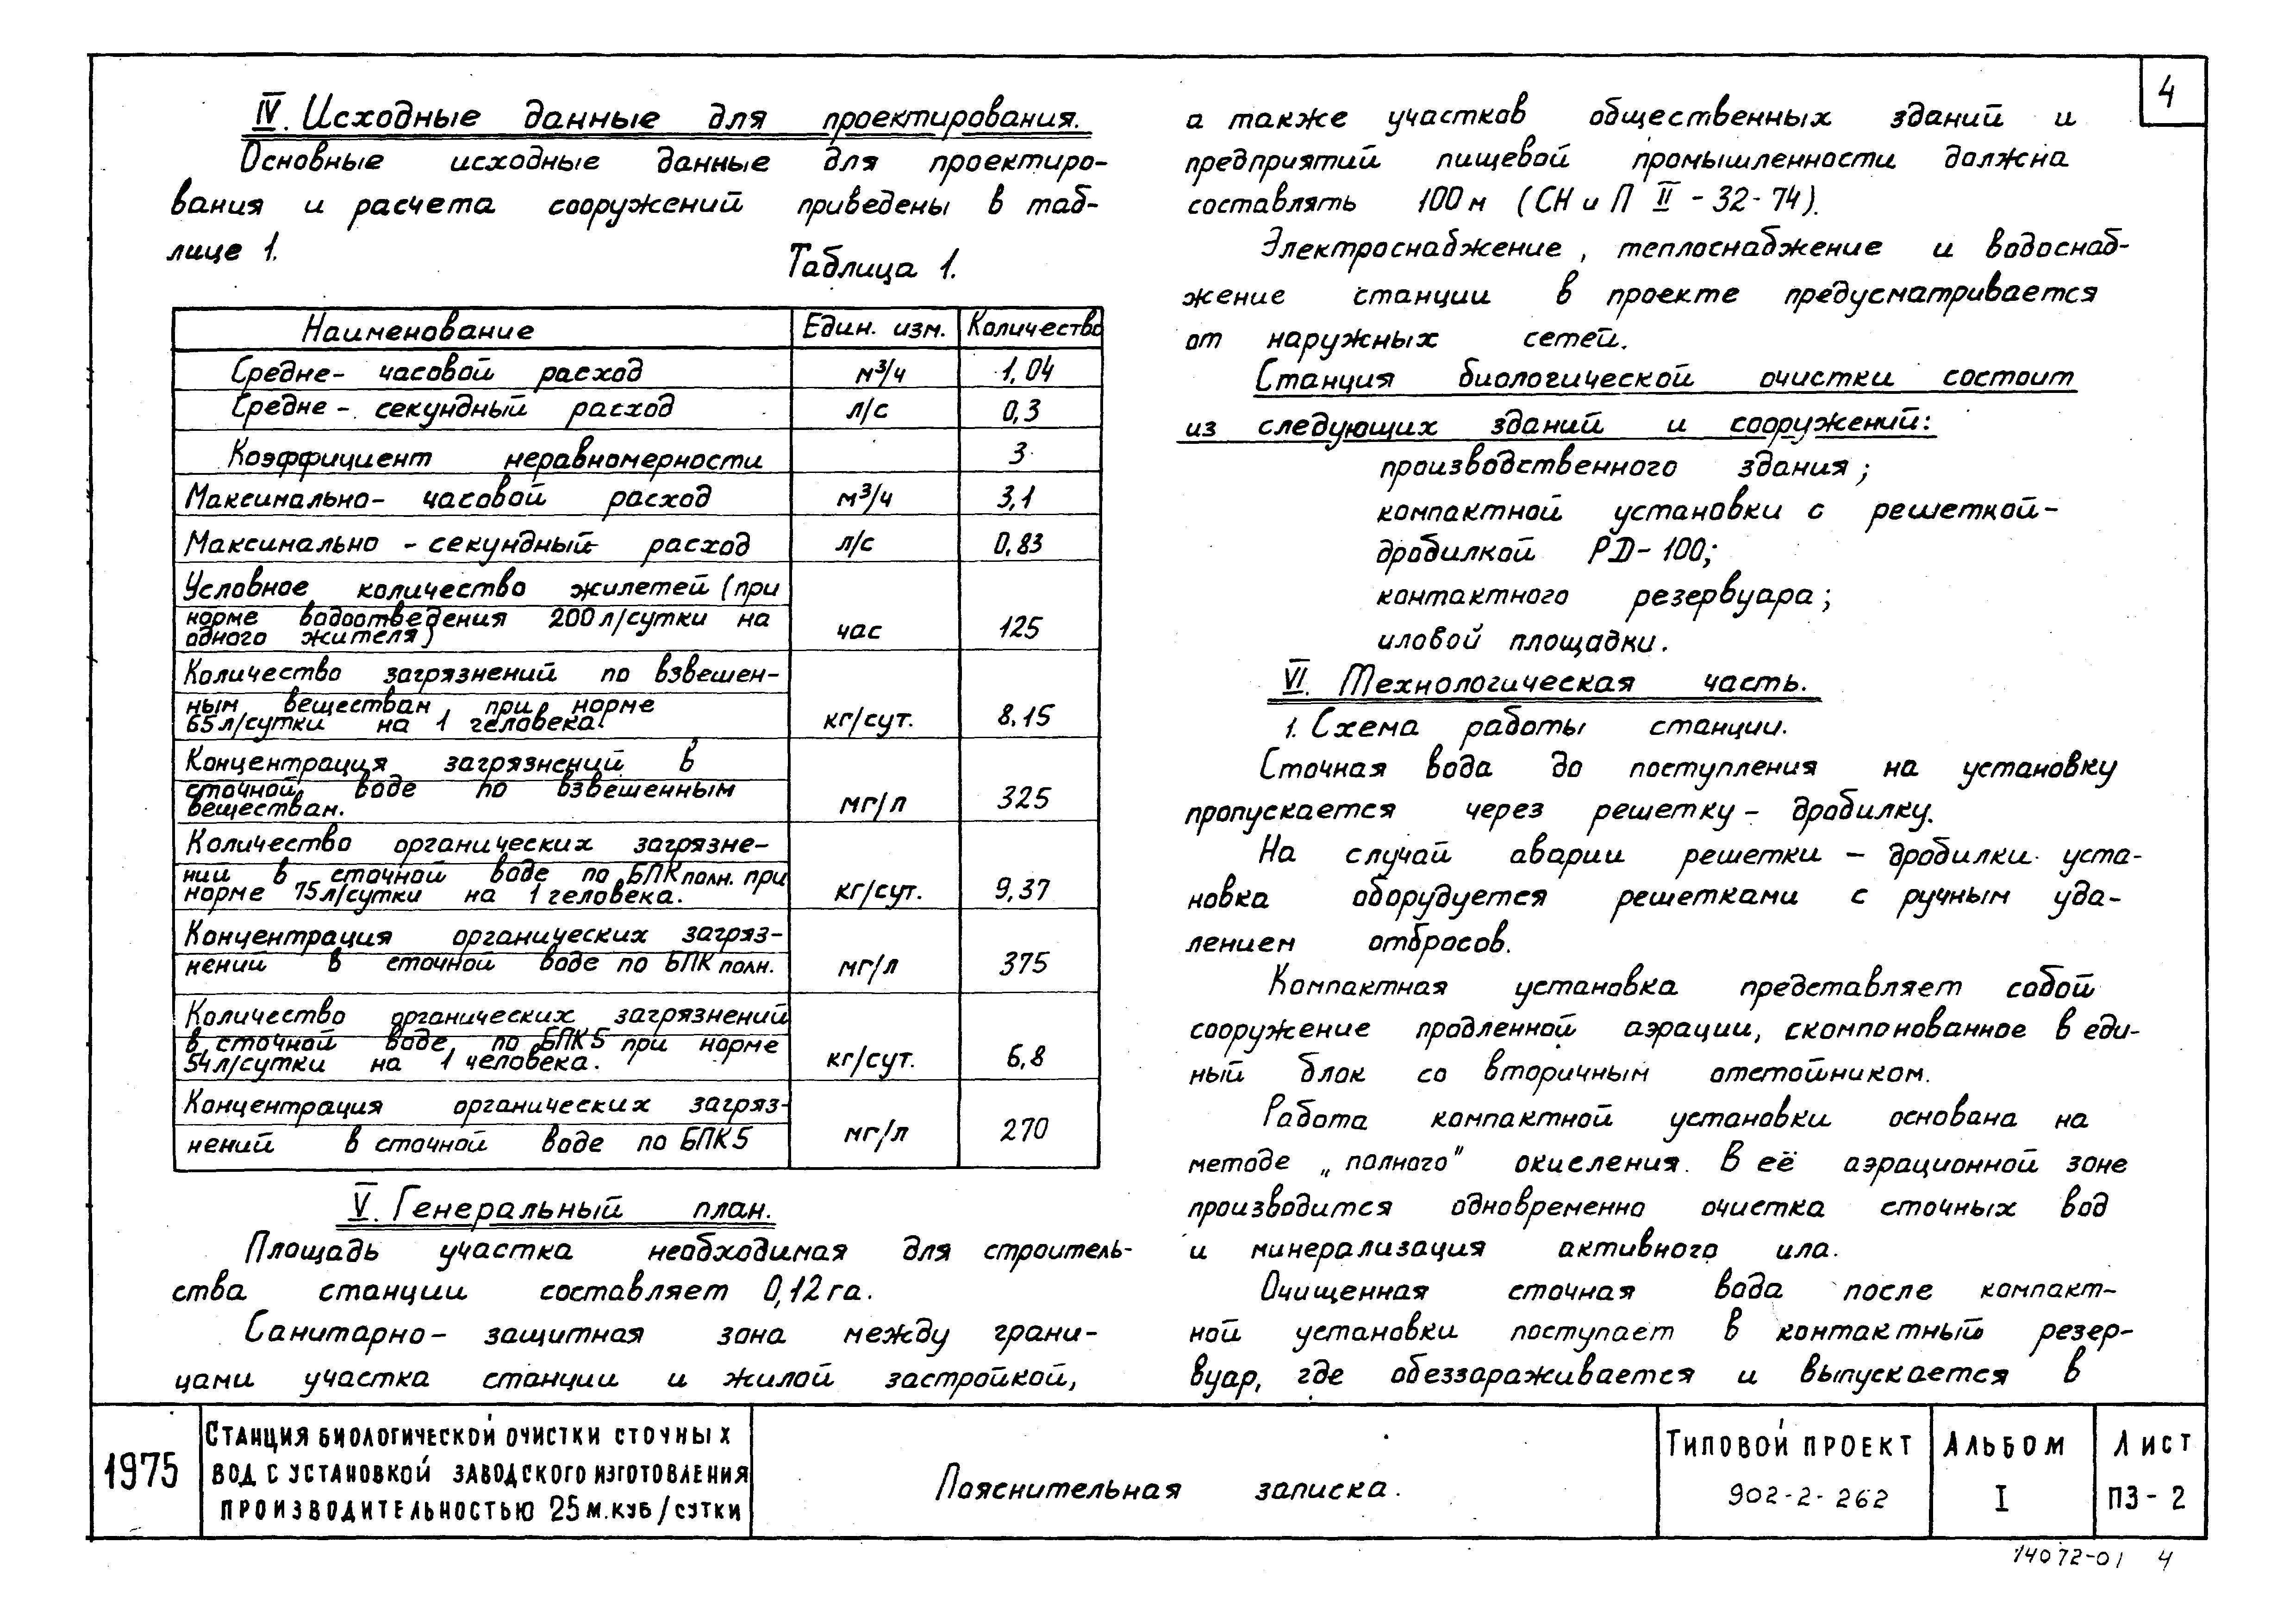 4
IV. Исходные данные для проектирования.
Основные исходные данные для проектиро-
вания и расчета сооружений приведены в таб-
лице 1.
Таблица 1.
Наименование Един. изм. Количество
Средне- часовой расход м³/ч 1,04
Средне - секундный расход л/с 0,3
Коэффициент неравномерности 3
Максимально- часовой расход м³/ч 3,1
Максимально - секундный расход л/с 0,83
Условное количество жилетей (при
норме водоотведения 200 л/сутки на
одного жителя) час 125
Количество загрязнений по взвешен-
ным веществам при норме
65 л/сутки на 1 человека. кг/сут. 8,15
Концентрация загрязнений в
сточной воде по взвешенным
веществам. мг/л 325
Количество органических загрязне-
ний в сточной воде по БПК полн. при
норме 75 л/сутки на 1 человека. кг/сут. 9,37
Концентрация органических загряз-
нений в сточной воде по БПК полн. мг/л 375
Количество органических загрязнений
в сточной воде по БПК5 при норме
54 л/сутки на 1 человека. кг/сут. 6,8
Концентрация органических загряз-
нений в сточной воде по БПК5 мг/л 270
V. Генеральный план.
Площадь участка необходимая для строитель-
ства станции составляет 0,12 га.
Санитарно- защитная зона между грани-
цами участка станции и жилой застройкой,
а также участков общественных зданий и
предприятий пищевой промышленности должна
составлять 100 м (СН и П II - 32-74).
Электроснабжение, теплоснабжение и водоснаб-
жение станции в проекте предусматривается
от наружных сетей.
Станция биологической очистки состоит
из следующих зданий и сооружений:
производственного здания;
компактной установки с решеткой-
дробилкой РД-100;
контактного резервуара;
иловой площадки.
VI. Технологическая часть.
1. Схема работы станции.
Сточная вода до поступления на установку
пропускается через решетку - дробилку.
На случай аварии решетки - дробилки уста-
новка оборудуется решетками с ручным уда-
лением отбросов.
Компактная установка представляет собой
сооружение продленной аэрации, скомпонованное в еди-
ный блок со вторичным отстойником.
Работа компактной установки основана на
методе „полного" окисления. В её аэрационной зоне
производится одновременно очистка сточных вод
и минерализация активного ила.
Очищенная сточная вода после компакт-
ной установки поступает в контактный резер-
вуар, где обеззараживается и выпускается в
1975
Станция биологической очистки сточных
вод с установкой заводского изготовления
производительностью 25 м.куб/сутки
Пояснительная записка.
Типовой проект
902-2-262
Альбом
I
Лист
ПЗ-2
14072-01 4